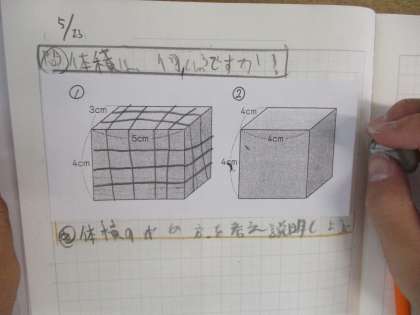 5/23
問 体積は 何㎤ですか!
① ②
3cm 4cm
5cm 4cm
4cm 4cm
体積の求め方を考え説明しよう